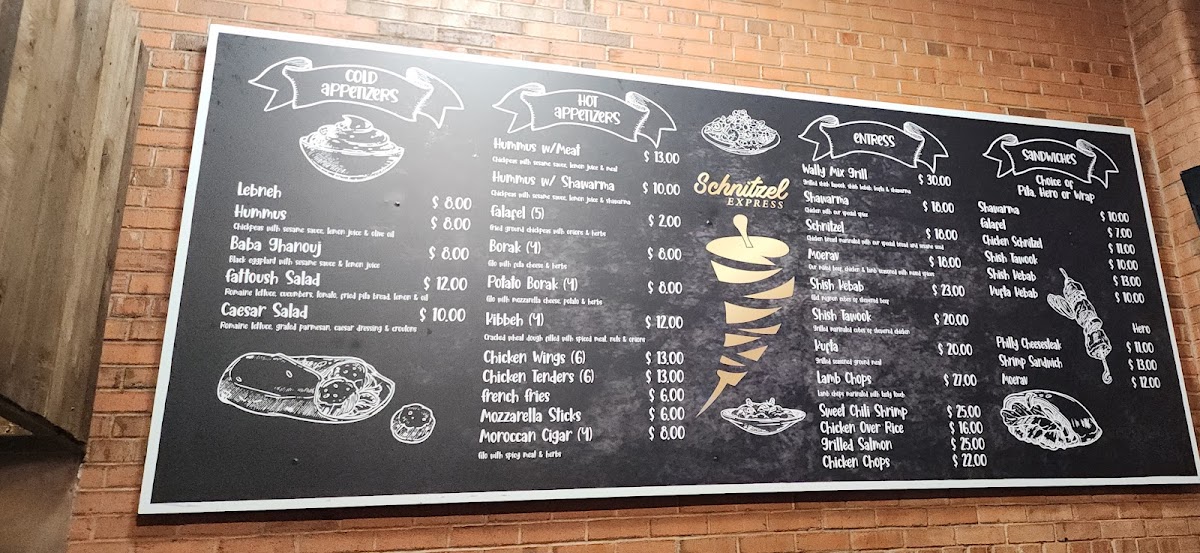 COLD
APPETIZERS
Lebneh $ 8.00
Hummus $ 8.00
Chickpeas with sesame sauce, lemon juice & olive oil
Baba Ghanouj $ 8.00
Black eggplant with sesame sauce & lemon juice
Fattoush Salad $ 12.00
Romaine lettuce, cucumbers, tomato, fried pita bread, lemon & oil
Caesar Salad $ 10.00
Romaine lettuce, grated parmesan, caesar dressing & croutons
HOT
APPETIZERS
Hummus w/Meat $ 13.00
Chickpeas with sesame sauce, lemon juice & meat
Hummus w/ Shawarma $ 10.00
Chickpeas with sesame sauce, lemon juice & shawarma
Falafel (5) $ 2.00
Fried ground chickpeas with onions & herbs
Borak (4) $ 8.00
filo with feta cheese & herbs
Potato Borak (4) $ 8.00
filo with mozzarella cheese, potato & herbs
Kibbeh (4) $ 12.00
Cracked wheat dough filled with spiced meat, nuts & onions
Chicken Wings (6) $ 13.00
Chicken Tenders (6) $ 13.00
French Fries $ 6.00
Mozzarella Sticks $ 6.00
Moroccan Cigar (4) $ 8.00
filo with spicy meat & herbs
Schnitzel
EXPRESS
ENTRESS
Wally Mix Grill $ 30.00
Grilled shish tawook, shish kebab, kufta & shawarma
Shawarma $ 18.00
Chicken with our special spice
Schnitzel $ 18.00
Chicken breast marinated with our special bread and sesame seed
Moerav $ 18.00
Shish Kebab $ 23.00
Shish Tawook $ 20.00
Grilled marinated cubes of skewered chicken
Kufta $ 20.00
Grilled seasoned ground meat
Lamb Chops $ 27.00
Sweet Chili Shrimp $ 25.00
Chicken Over Rice $ 16.00
Grilled Salmon $ 25.00
Chicken Chops $ 22.00
SANDWICHES
Choice of
Pita, Hero or Wrap
Shawarma $ 10.00
Falafel $ 7.00
Chicken Schnitzel $ 11.00
Shish Tawook $ 10.00
Shish Kebab $ 13.00
Kufta Kebab $ 10.00
Hero
Philly Cheesesteak $ 11.00
Shrimp Sandwich $ 13.00
Moerav $ 12.00